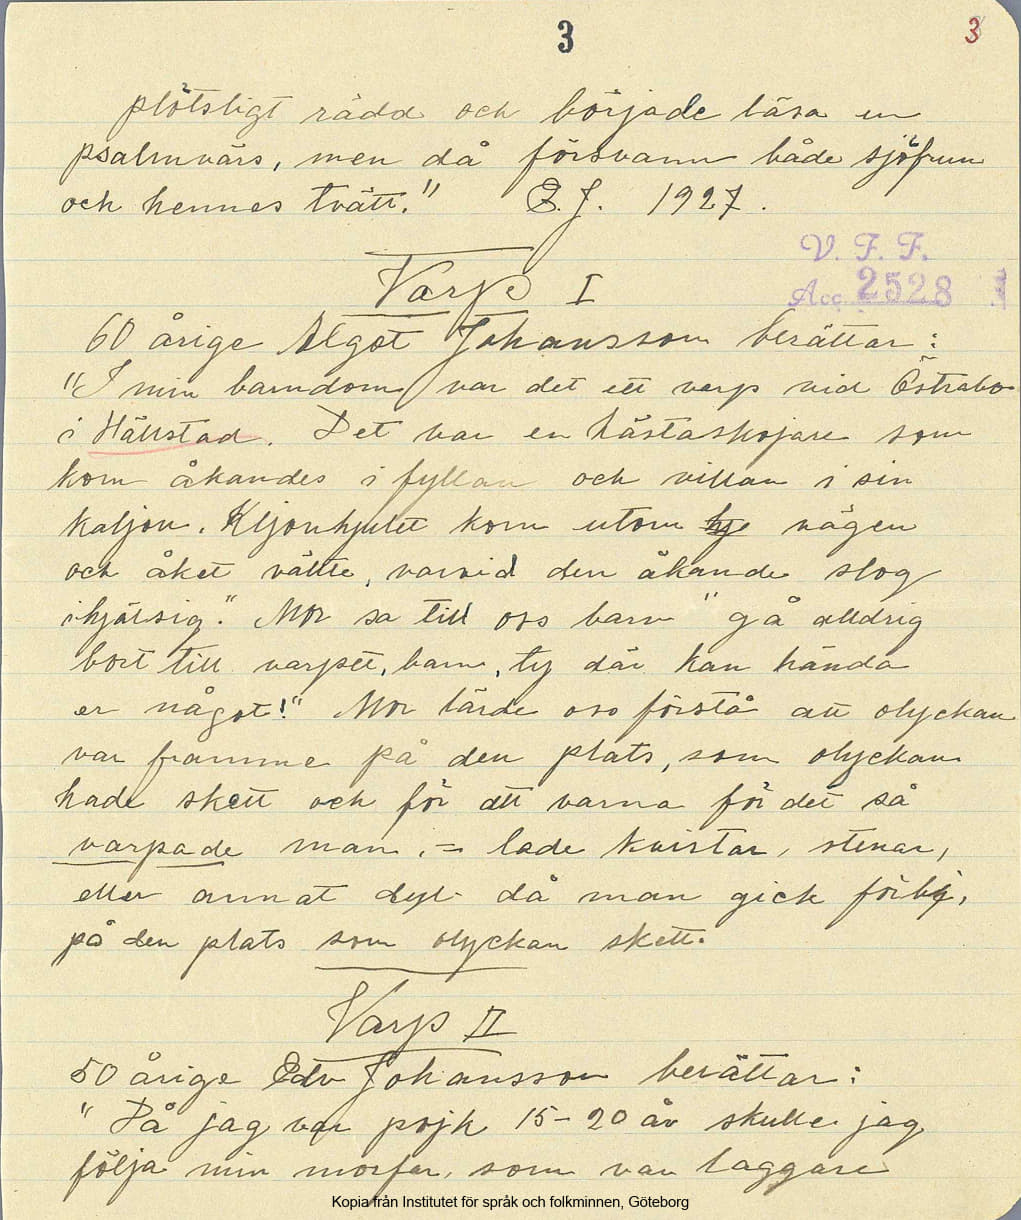 3
3
plötsligt rädd och började läsa en
psalmvärs, men då försvann både sjöfrun
och hennes tvätt." E.J. 1927.
V. F. F.
Acc. 2528
Varp I
60 årige Algot Johansson berättar:
"I min barndom var det ett varp vid Östrabo
i Hällstad. Det var en hästaskojare som
kom åkandes i fyllan och villan i sin
kaljon. Kljonhjulet kom utom vägen
och åket välte, varvid den åkande slog
ihjälsig." Mor sa till oss barn "gå alldrig
bort till varpet, barn, ty där kan hända
er något!" Mor lärde oss förstå att olyckan
var framme på den plats, som olyckan
hade skett och för att varna för det så
varpade man, = lade kvistar, stenar,
eller annat dyl. då man gick förbi,
på den plats som olyckan skett.
Varp II
50 årige Edv Johansson berättar:
"Då jag var pojk 15-20 år skulle jag
följa min morfar, som var laggare
Kopia från Institutet för språk och folkminnen, Göteborg